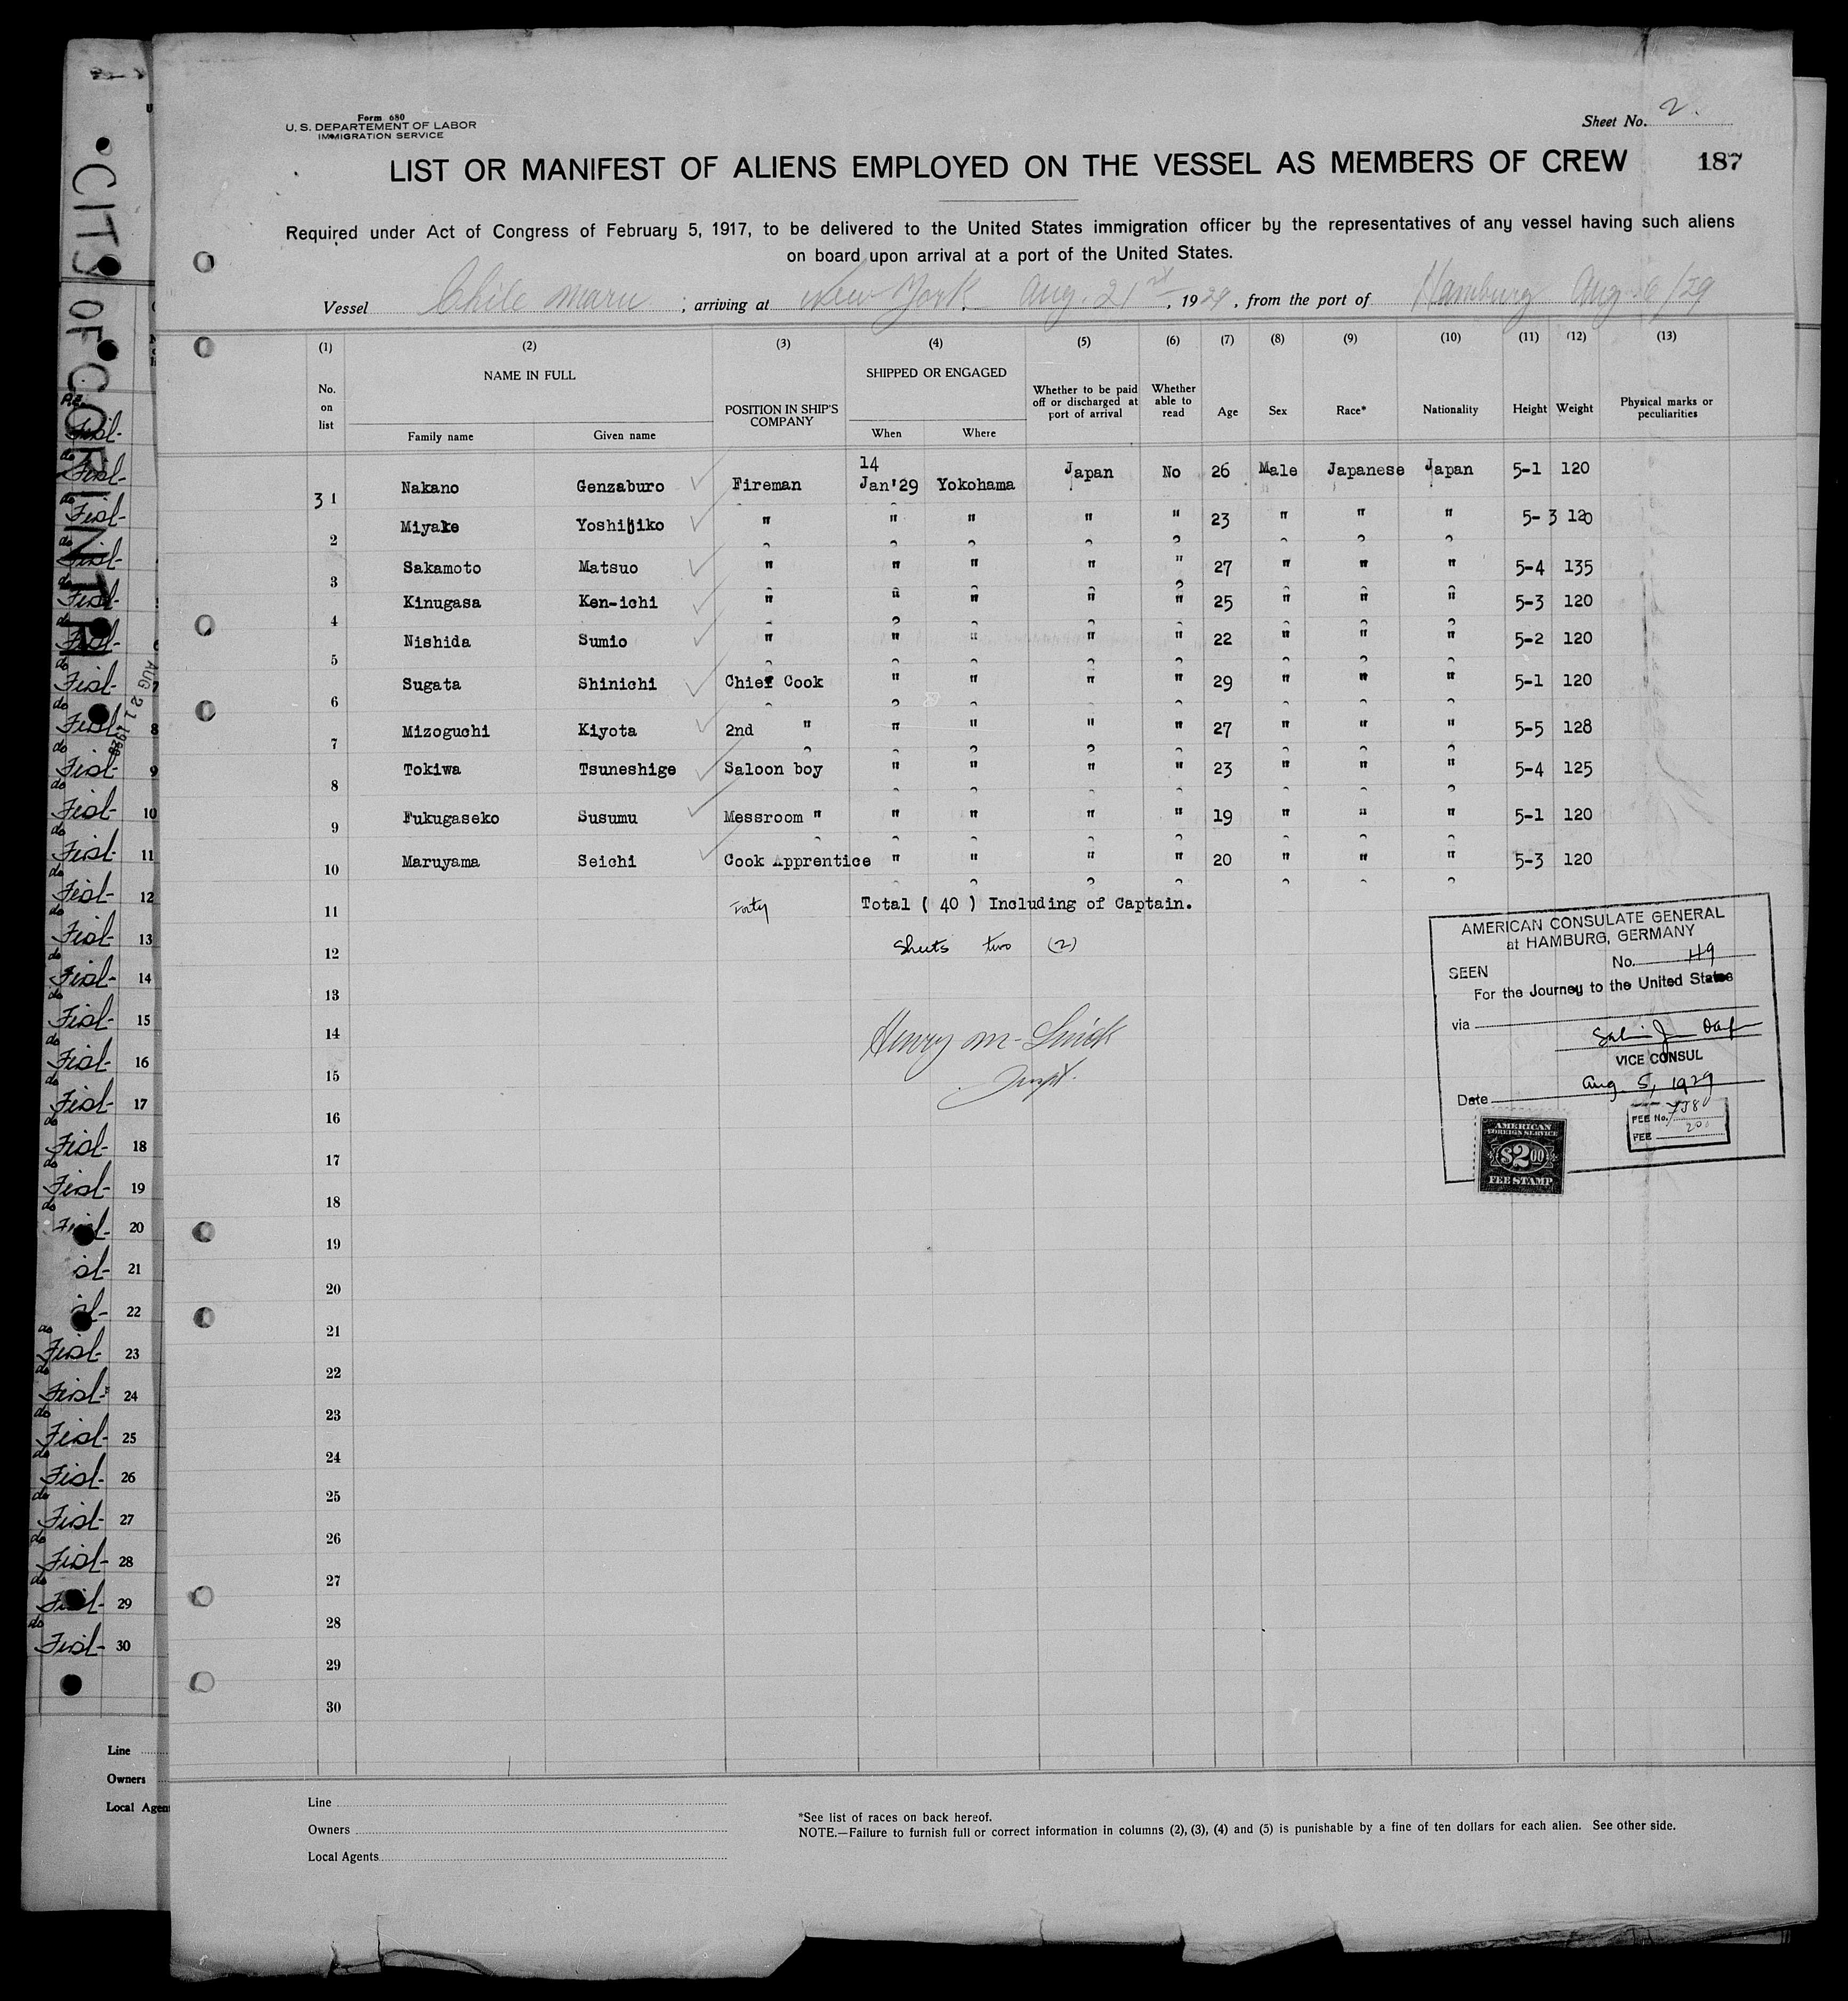 Form 680
U. S. DEPARTEMENT OF LABOR
IMMIGRATION SERVICE
Sheet No. 2.
LIST OR MANIFEST OF ALIENS EMPLOYED ON THE VESSEL AS MEMBERS OF CREW 187
Required under Act of Congress of February 5, 1917, to be delivered to the United States immigration officer by the representatives of any vessel having such aliens
on board upon arrival at a port of the United States.
Vessel Chile Maru ; arriving at New York, Aug. 21st, 1929, from the port of Hamburg Aug. 6/29
(1) (2) (3) (4) (5) (6) (7) (8) (9) (10) (11) (12) (13)
No. on list NAME IN FULL Family name Given name POSITION IN SHIP'S COMPANY SHIPPED OR ENGAGED When Where Whether to be paid off or discharged at port of arrival Whether able to read Age Sex Race* Nationality Height Weight Physical marks or peculiarities
31 Nakano Genzaburo Fireman 14 Jan'29 Yokohama Japan No 26 Male Japanese Japan 5-1 120
2 Miyake Yoshihiko " " " " " 23 " " " 5-3 120
3 Sakamoto Matsuo " " " " " 27 " " " 5-4 135
4 Kinugasa Ken-ichi " " " " " 25 " " " 5-3 120
5 Nishida Sumio " " " " " 22 " " " 5-2 120
6 Sugata Shinichi Chief Cook " " " " 29 " " " 5-1 120
7 Mizoguchi Kiyota 2nd " " " " " 27 " " " 5-5 128
8 Tokiwa Tsuneshige Saloon boy " " " " 23 " " " 5-4 125
9 Fukugaseko Susumu Messroom " " " " " 19 " " " 5-1 120
10 Maruyama Seichi Cook Apprentice " " " " 20 " " " 5-3 120
11 Forty Total ( 40 ) Including of Captain.
12 Sheets two (2)
13
14 Henry M.
15
16
17
18
19
20
21
22
23
24
25
26
27
28
29
30
AMERICAN CONSULATE GENERAL
at HAMBURG, GERMANY
SEEN No. 49
For the Journey to the United States
via
VICE CONSUL
Date Aug. 5, 1929
FEE No. 7580
FEE 200
AMERICAN
FOREIGN SERVICE
$2.00
FEE STAMP
Line
Owners
Local Agents
*See list of races on back hereof.
NOTE.—Failure to furnish full or correct information in columns (2), (3), (4) and (5) is punishable by a fine of ten dollars for each alien. See other side.
CITY OF CORINTH
AUG 21 1929
8
9
10
11
12
13
14
15
16
17
18
19
20
21
22
23
24
25
26
27
28
29
30
Line
Owners
Local Agen